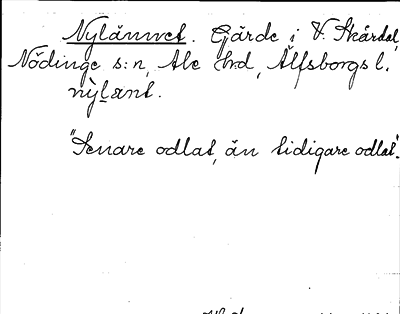 Nylännet. Gärde i V. Skårdal,
Nödinge s:n, Ale h:d, Älfsborgs l.
nỳḷænt.
"Senare odlat, än tidigare odlat".